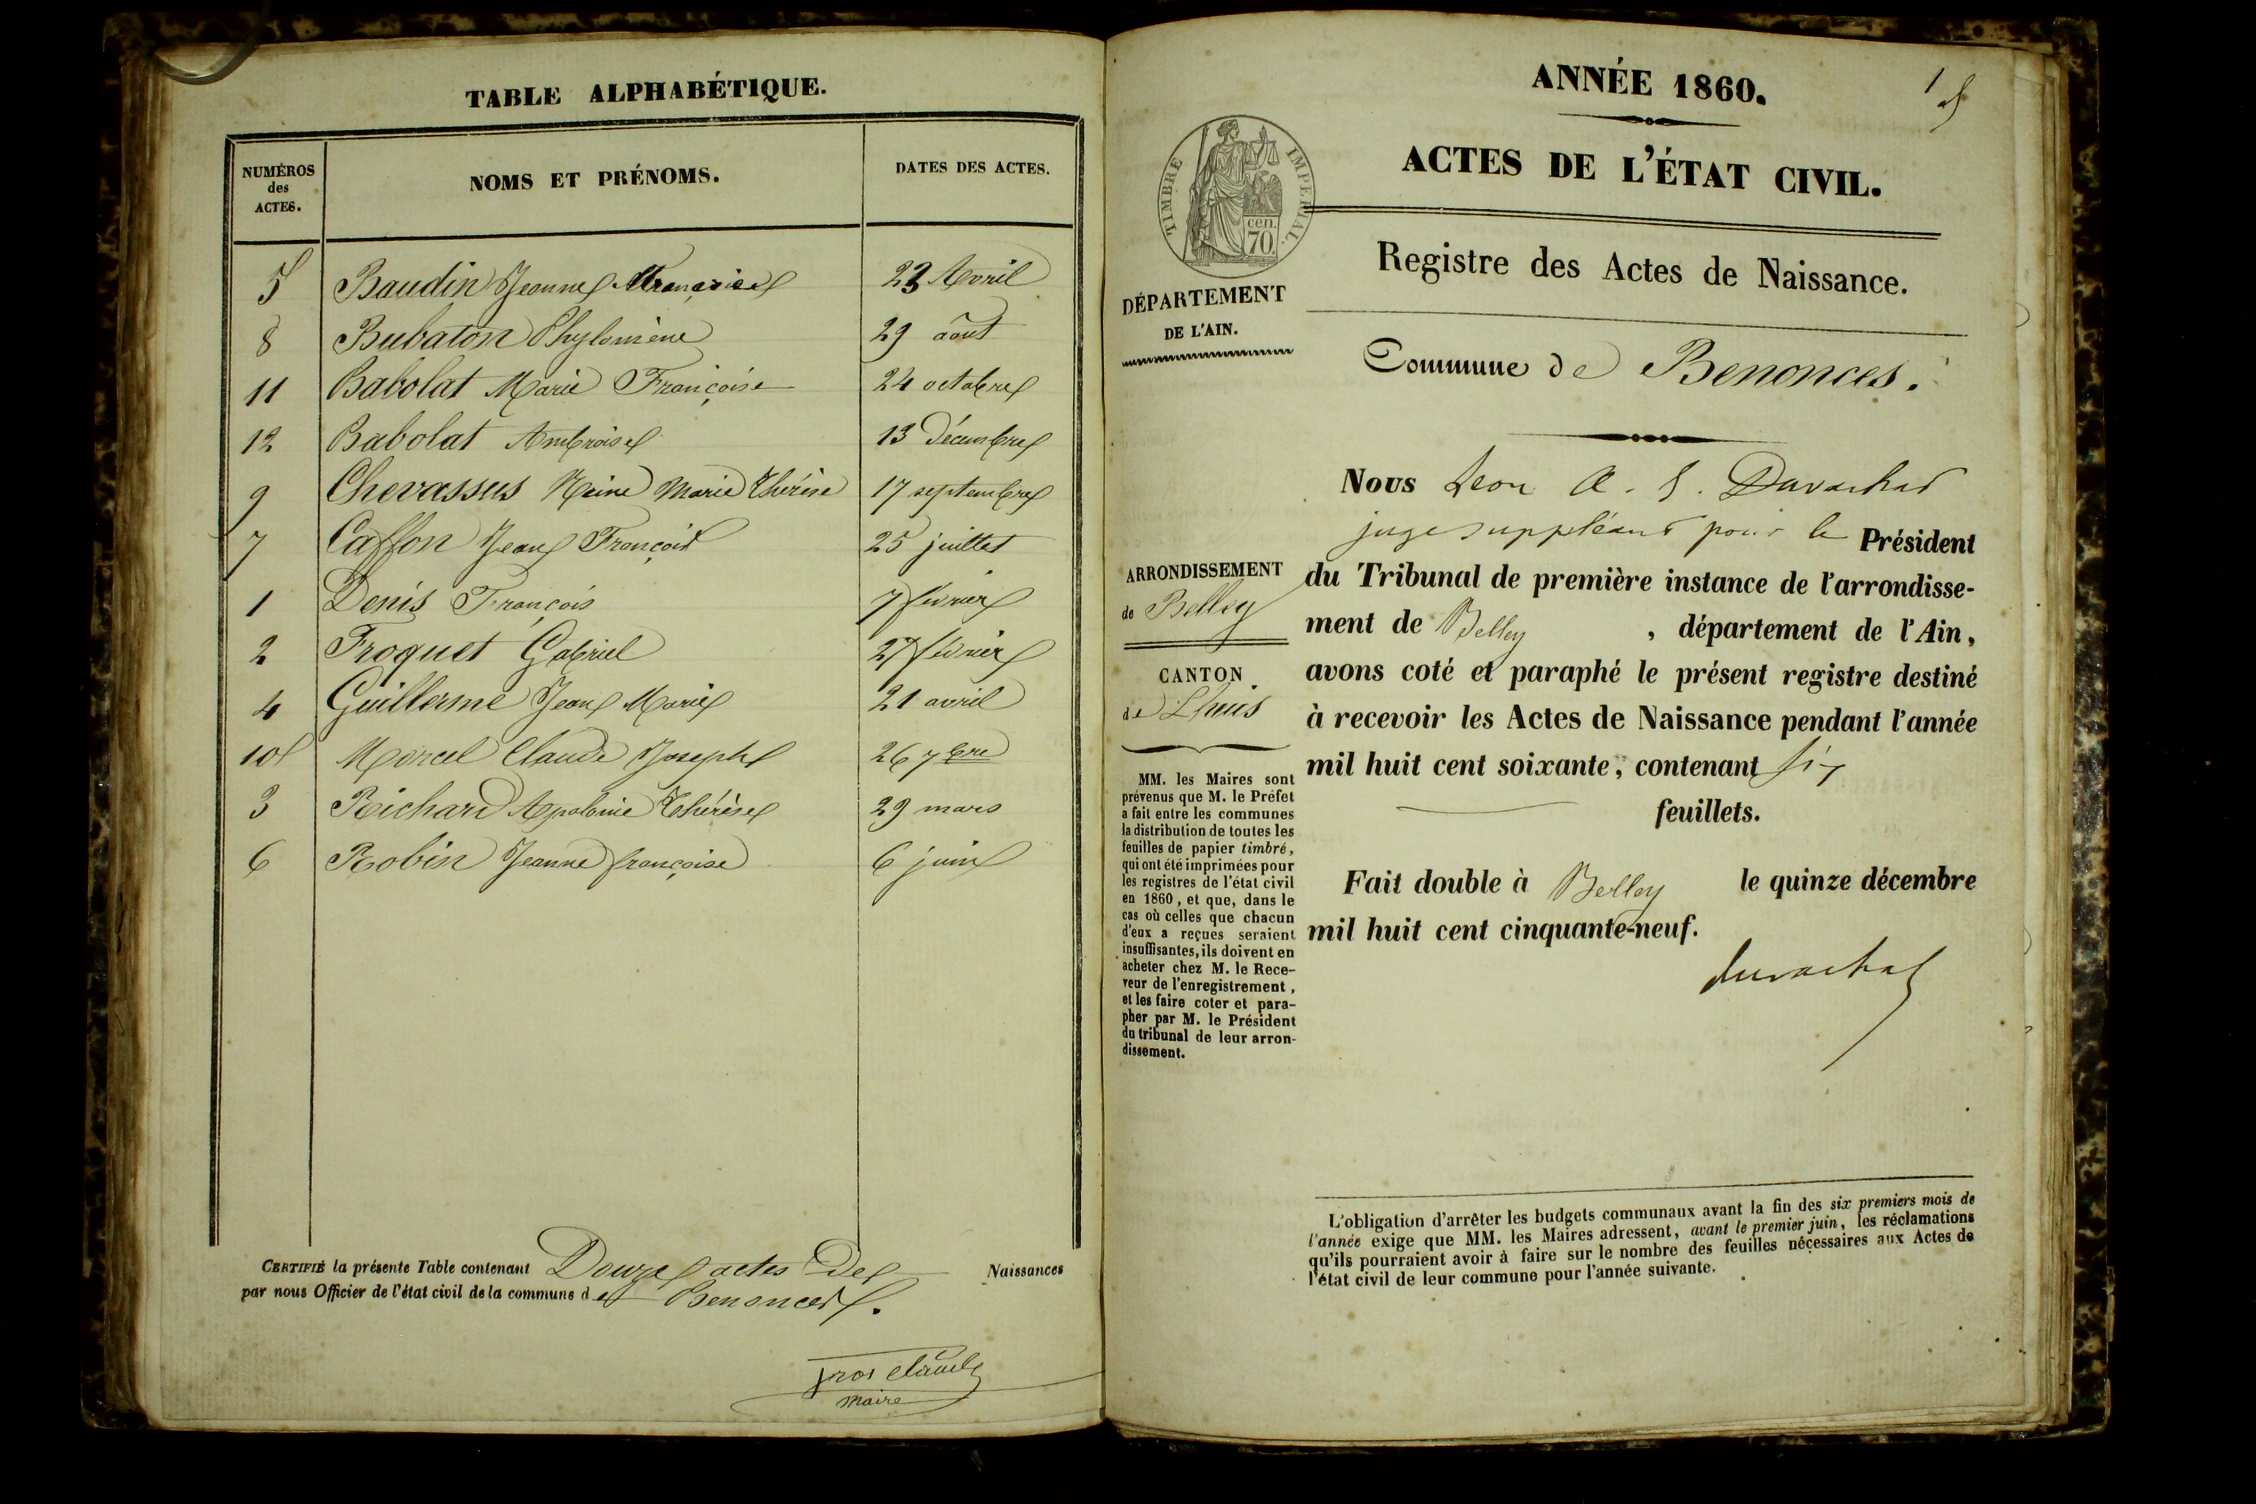 TABLE ALPHABÉTIQUE.
NUMÉROS des ACTES. NOMS ET PRÉNOMS. DATES DES ACTES.
5 Baudin Jeanne Française 23 Avril
8 Bubaton Phylomène 29 août
11 Babolat Marie Françoise 24 octobre
12 Babolat Ambroise 13 Décembre
9 Chevassus Reine Marie Thérèse 17 septembre
7 Caffon Jean François 25 juillet
1 Denis François 7 février
2 Froquet Gabriel 27 février
4 Guillerme Jean Marie 21 avril
10 Marcel Claude Joseph 26 7bre
3 Richard Apolonie Thérèse 29 mars
6 Robin Jeanne françoise 6 juin
CERTIFIÉ la présente Table contenant Douze actes De Naissances
par nous Officier de l'état civil de la commune de Benonces.
Claude
Maire
1
ANNÉE 1860.
ACTES DE L'ÉTAT CIVIL.
TIMBRE IMPERIAL.
cen.
70
Registre des Actes de Naissance.
DÉPARTEMENT
DE L'AIN.
Commune de Benonces.
Nous Leon A. Davachat
juge suppléant pour le Président
du Tribunal de première instance de l'arrondisse-
ment de Belley, département de l'Ain,
avons coté et paraphé le présent registre destiné
à recevoir les Actes de Naissance pendant l'année
mil huit cent soixante, contenant six
feuillets.
Fait double à Belley le quinze décembre
mil huit cent cinquante-neuf.
ARRONDISSEMENT
de Belley
CANTON
de Lhuis
MM. les Maires sont
prévenus que M. le Préfet
a fait entre les communes
la distribution de toutes les
feuilles de papier timbré,
qui ont été imprimées pour
les registres de l'état civil
en 1860, et que, dans le
cas où celles que chacun
d'eux a reçues seraient
insuffisantes, ils doivent en
acheter chez M. le Rece-
veur de l'enregistrement,
et les faire coter et para-
pher par M. le Président
du tribunal de leur arron-
dissement.
L'obligation d'arrêter les budgets communaux avant la fin des six premiers mois de
l'année exige que MM. les Maires adressent, avant le premier juin, les réclamations
qu'ils pourraient avoir à faire sur le nombre des feuilles nécessaires aux Actes de
l'état civil de leur commune pour l'année suivante.